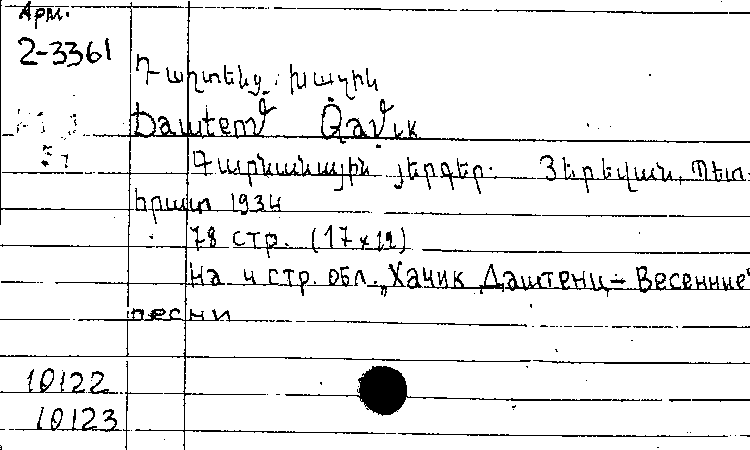 Арм.
2-3361
Դաշտենց, Խաչիկ
Daшtenց Qaչik
Գարնանային յերգեր. Յերեվան, Պետ-
հրատ 1934
78 стр. (17×12)
На 4 стр. обл. „Хачик Даштенц – Весенние
песни
10122
10123